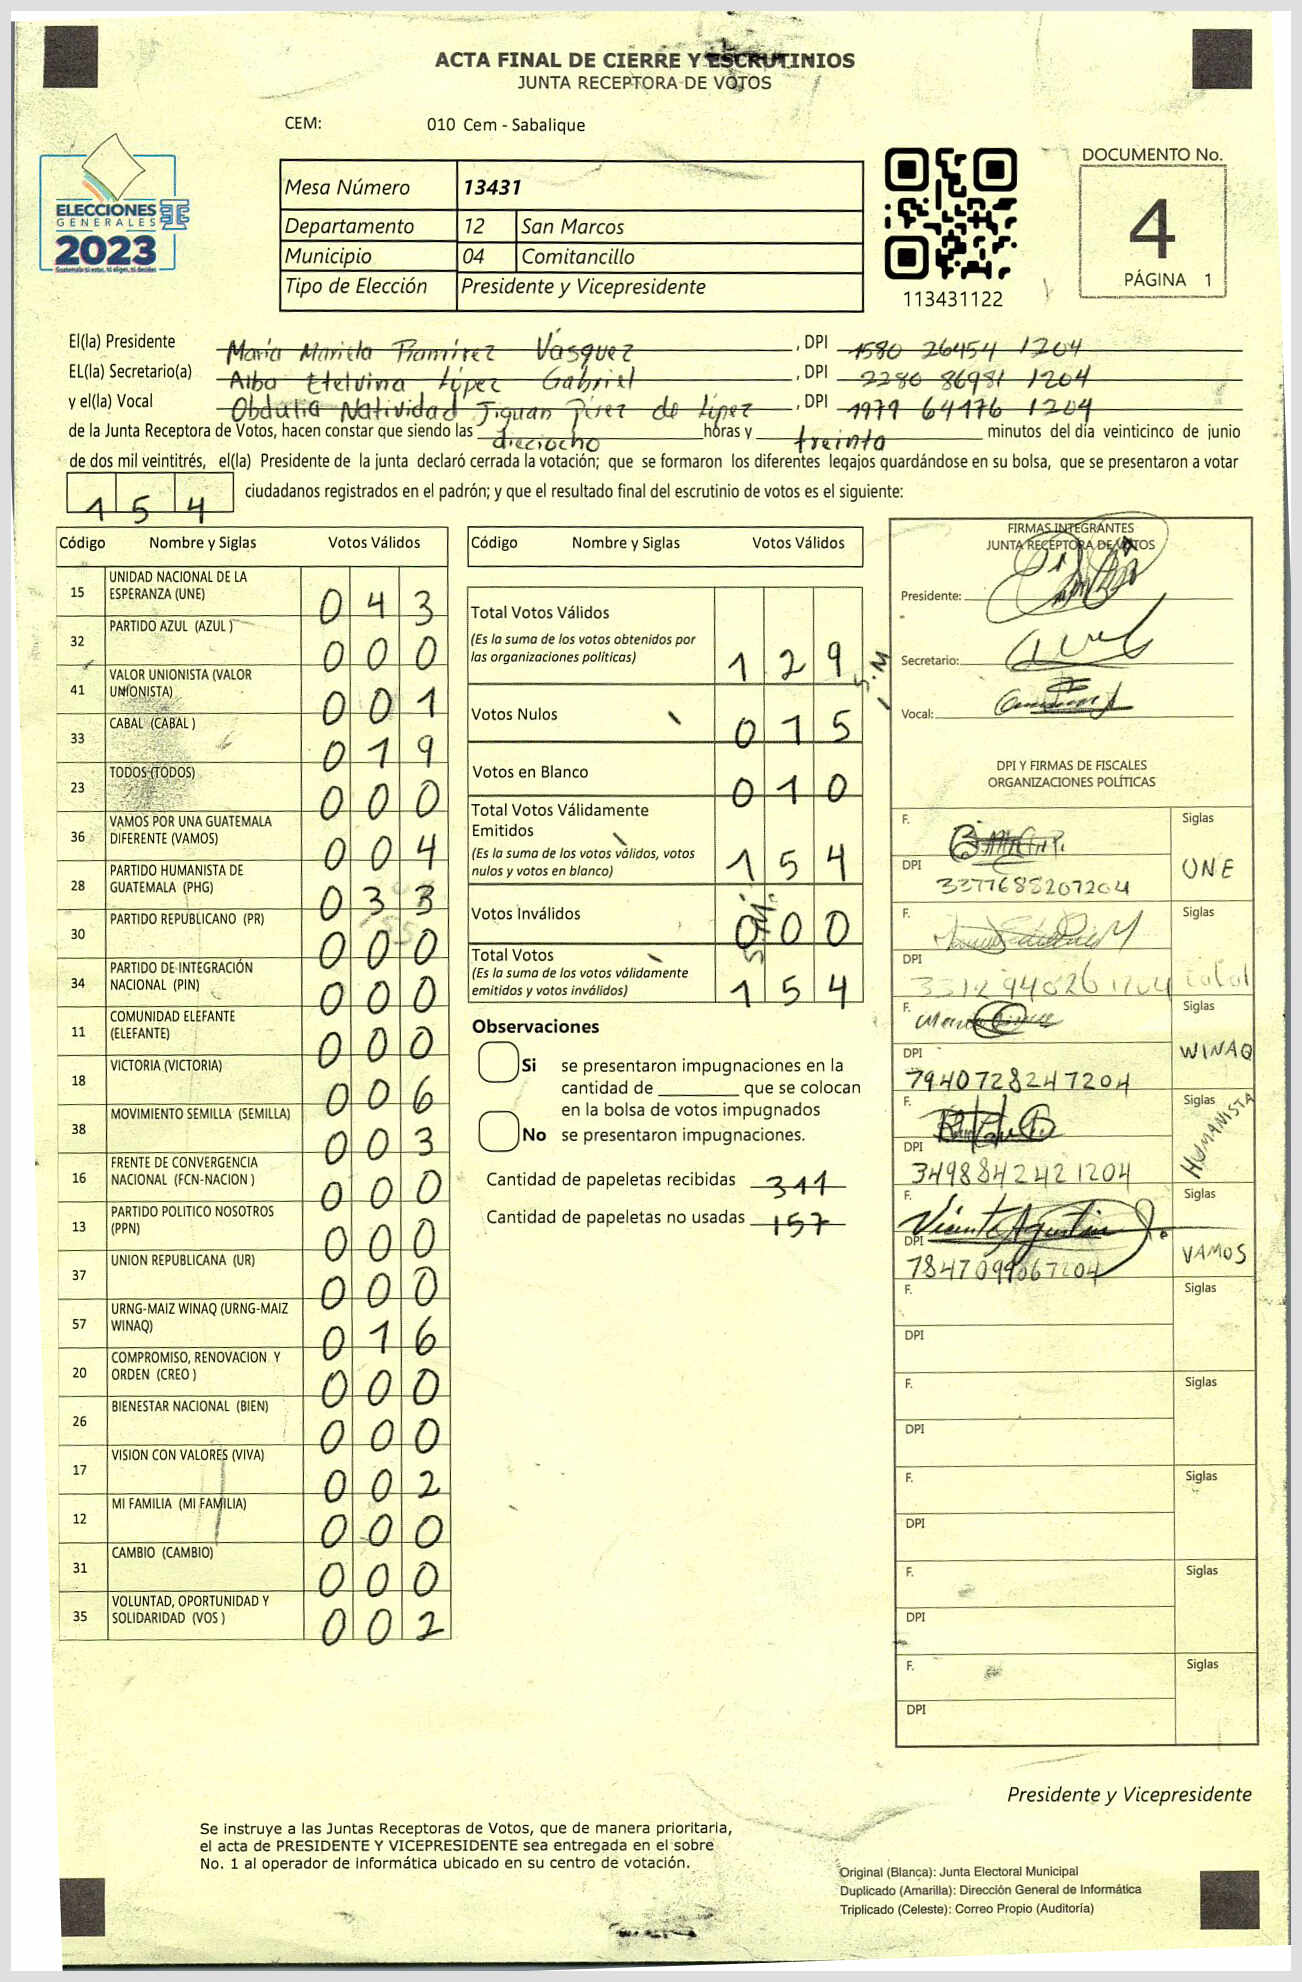 ACTA FINAL DE CIERRE Y ESCRUTINIOS
JUNTA RECEPTORA DE VOTOS
CEM: 010 Cem - Sabalique
ELECCIONES
GENERALES
2023
Guatemala tú estas, tú eliges, tú decides
Mesa Número 13431
Departamento 12 San Marcos
Municipio 04 Comitancillo
Tipo de Elección Presidente y Vicepresidente
113431122
DOCUMENTO No.
4
PÁGINA 1
El(la) Presidente María Mariela Ramírez Vásquez , DPI 1580 26454 1204
EL(la) Secretario(a) Alba Etelvina López Gabriel , DPI 2280 86981 1204
y el(la) Vocal Obdulia Natividad Jiguan Pérez de López , DPI 1979 64176 1204
de la Junta Receptora de Votos, hacen constar que siendo las dieciocho horas y treinta minutos del día veinticinco de junio
de dos mil veintitrés, el(la) Presidente de la junta declaró cerrada la votación; que se formaron los diferentes legajos quardándose en su bolsa, que se presentaron a votar
154 ciudadanos registrados en el padrón; y que el resultado final del escrutinio de votos es el siguiente:
Código Nombre y Siglas Votos Válidos
15 UNIDAD NACIONAL DE LA ESPERANZA (UNE) 043
32 PARTIDO AZUL (AZUL ) 000
41 VALOR UNIONISTA (VALOR UNIONISTA) 001
33 CABAL (CABAL ) 019
23 TODOS (TODOS) 000
36 VAMOS POR UNA GUATEMALA DIFERENTE (VAMOS) 004
28 PARTIDO HUMANISTA DE GUATEMALA (PHG) 033
30 PARTIDO REPUBLICANO (PR) 000
34 PARTIDO DE INTEGRACIÓN NACIONAL (PIN) 000
11 COMUNIDAD ELEFANTE (ELEFANTE) 000
18 VICTORIA (VICTORIA) 006
38 MOVIMIENTO SEMILLA (SEMILLA) 003
16 FRENTE DE CONVERGENCIA NACIONAL (FCN-NACION ) 000
13 PARTIDO POLITICO NOSOTROS (PPN) 000
37 UNION REPUBLICANA (UR) 000
57 URNG-MAIZ WINAQ (URNG-MAIZ WINAQ) 016
20 COMPROMISO, RENOVACION Y ORDEN (CREO ) 000
26 BIENESTAR NACIONAL (BIEN) 000
17 VISION CON VALORES (VIVA) 002
12 MI FAMILIA (MI FAMILIA) 000
31 CAMBIO (CAMBIO) 000
35 VOLUNTAD, OPORTUNIDAD Y SOLIDARIDAD (VOS ) 002
Código Nombre y Siglas Votos Válidos
Total Votos Válidos 129
(Es la suma de los votos obtenidos por
las organizaciones políticas)
Votos Nulos 015
Votos en Blanco 010
Total Votos Válidamente
Emitidos
(Es la suma de los votos válidos, votos
nulos y votos en blanco) 154
Votos Inválidos 000
Total Votos
(Es la suma de los votos válidamente
emitidos y votos inválidos) 154
Observaciones
Si se presentaron impugnaciones en la
cantidad de ________ que se colocan
en la bolsa de votos impugnados
No se presentaron impugnaciones.
Cantidad de papeletas recibidas 311
Cantidad de papeletas no usadas 157
FIRMAS INTEGRANTES
JUNTA RECEPTORA DE VOTOS
Presidente:
Secretario:
Vocal:
DPI Y FIRMAS DE FISCALES
ORGANIZACIONES POLÍTICAS
F. Siglas
DPI 3377688207204 UNE
F. Siglas
DPI 3312 94026 1204 Cabal
F. Siglas
DPI 7940728247204 WINAQ
F. Siglas
DPI 3498842421204 HUMANISTA
F. Vicente Agustin Siglas
DPI 7847099067204 VAMOS
F. Siglas
DPI
F. Siglas
DPI
F. Siglas
DPI
F. Siglas
DPI
F. Siglas
DPI
Presidente y Vicepresidente
Se instruye a las Juntas Receptoras de Votos, que de manera prioritaria,
el acta de PRESIDENTE Y VICEPRESIDENTE sea entregada en el sobre
No. 1 al operador de informática ubicado en su centro de votación.
Original (Blanca): Junta Electoral Municipal
Duplicado (Amarilla): Dirección General de Informática
Triplicado (Celeste): Correo Propio (Auditoría)